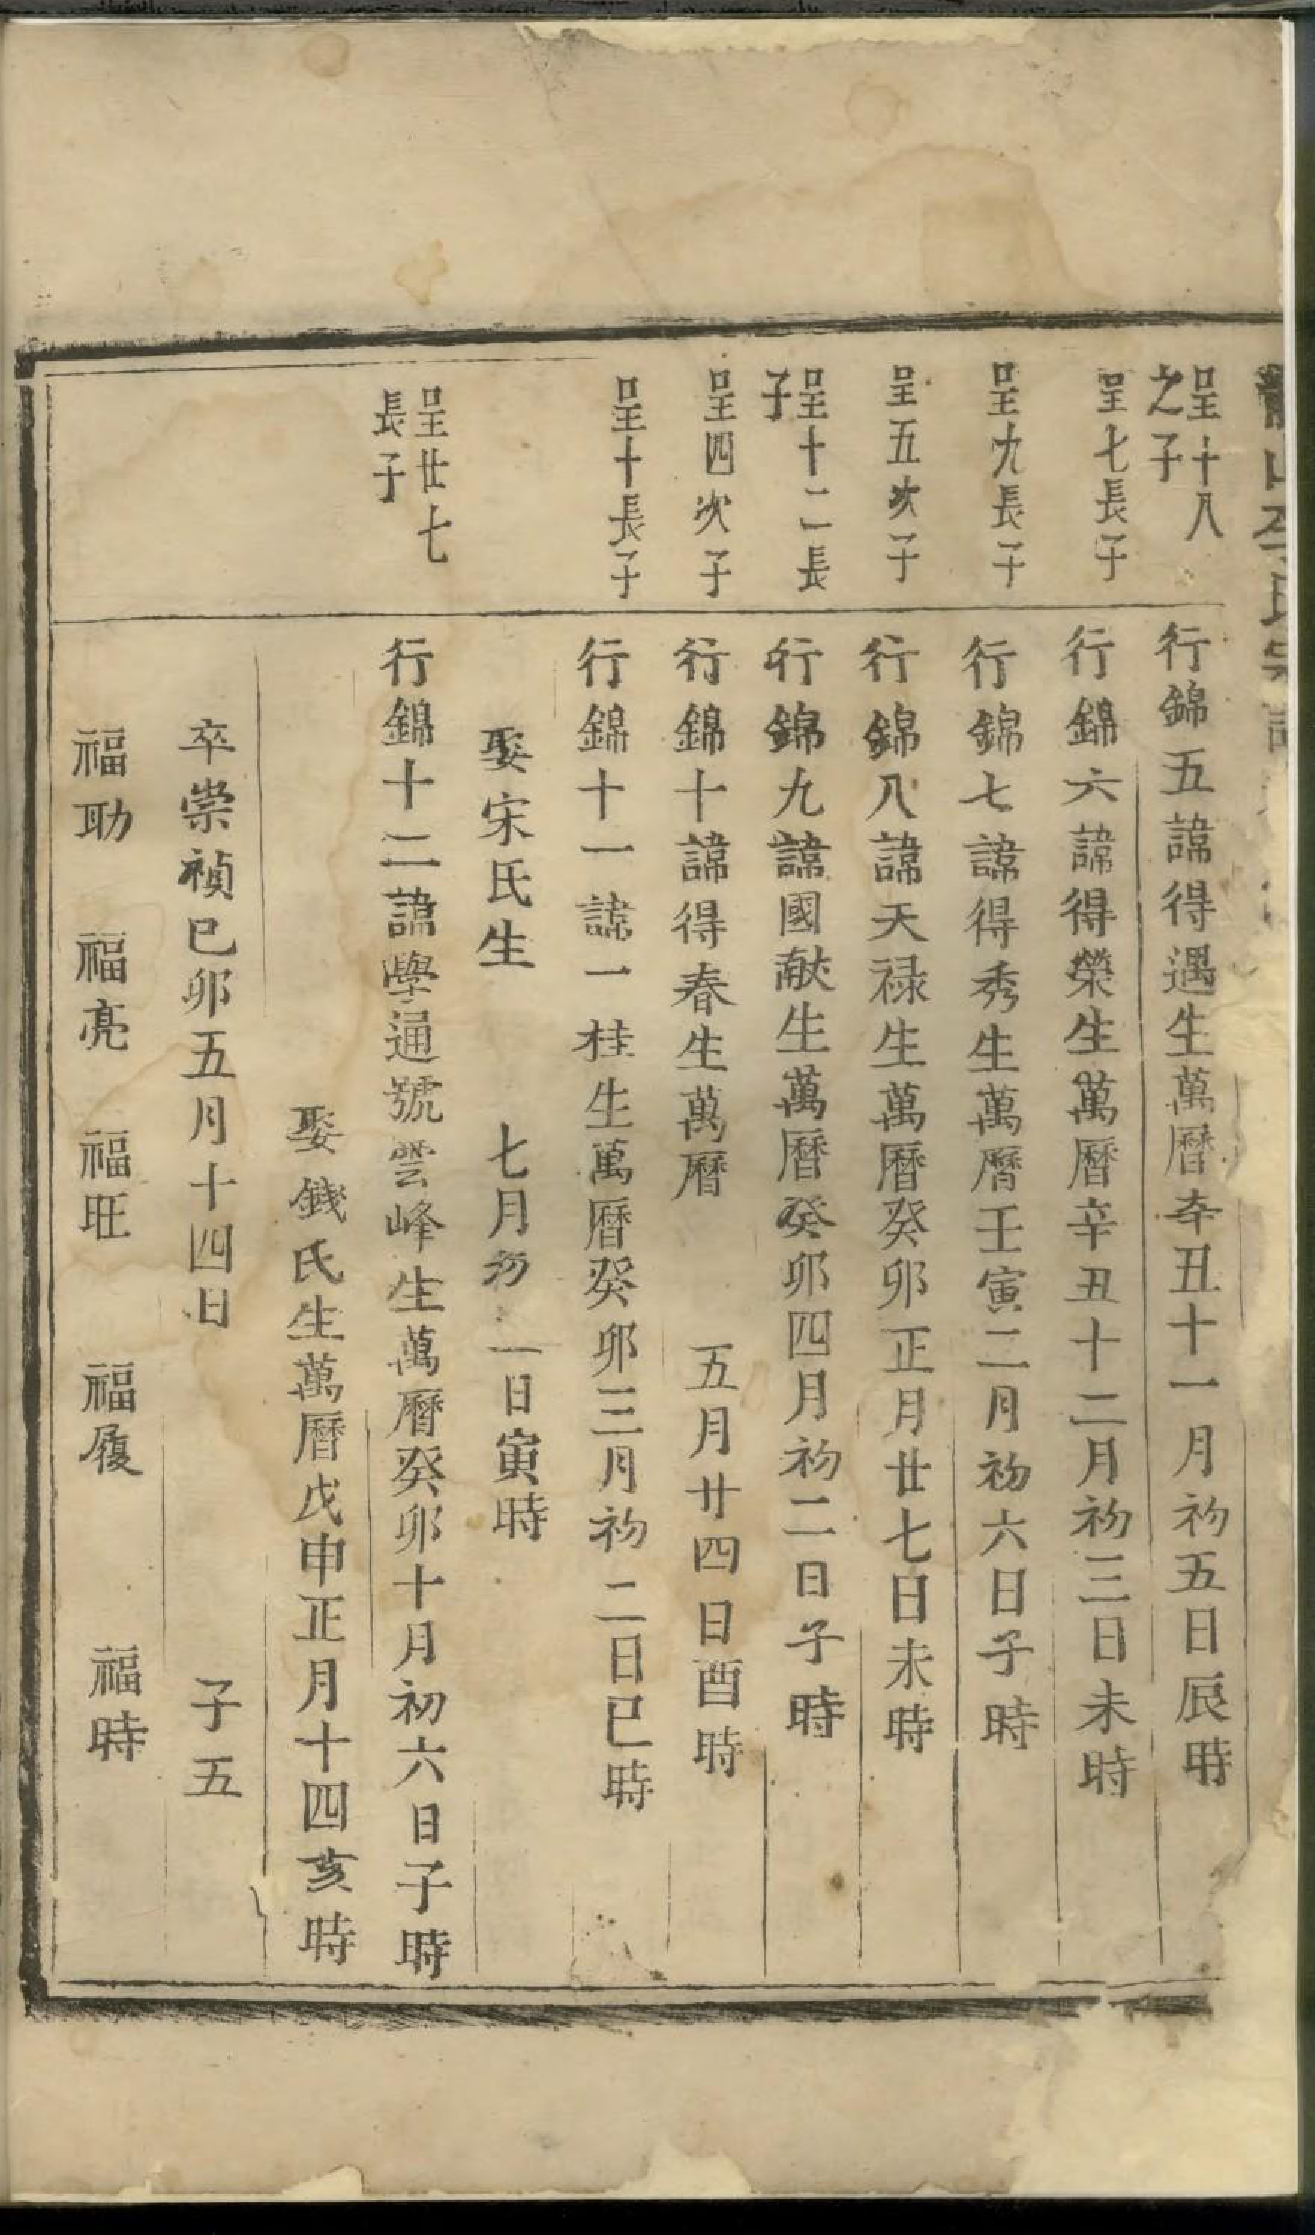 呈十八
之子
行錦五諱得遇生萬曆辛丑十一月初五日辰時
呈七長子
行錦六諱得榮生萬曆辛丑十二月初三日未時
呈九長子
行錦七諱得秀生萬曆壬寅二月初六日子時
呈五次子
行錦八諱天禄生萬曆癸卯正月廿七日未時
呈十二長
子
行錦九諱國献生萬曆癸卯四月初二日子時
呈四次子
行錦十諱得春生萬曆　五月廿四日酉時
呈十長子
行錦十一諱一桂生萬曆癸卯三月初二日巳時
娶宋氏生　七月初一日寅時
呈廿七
長子
行錦十二諱學通號雲峰生萬曆癸卯十月初六日子時
娶錢氏生萬曆戊申正月十四亥時
卒崇禎己卯五月十四日　子五
福助　福亮　福旺　福履　福時